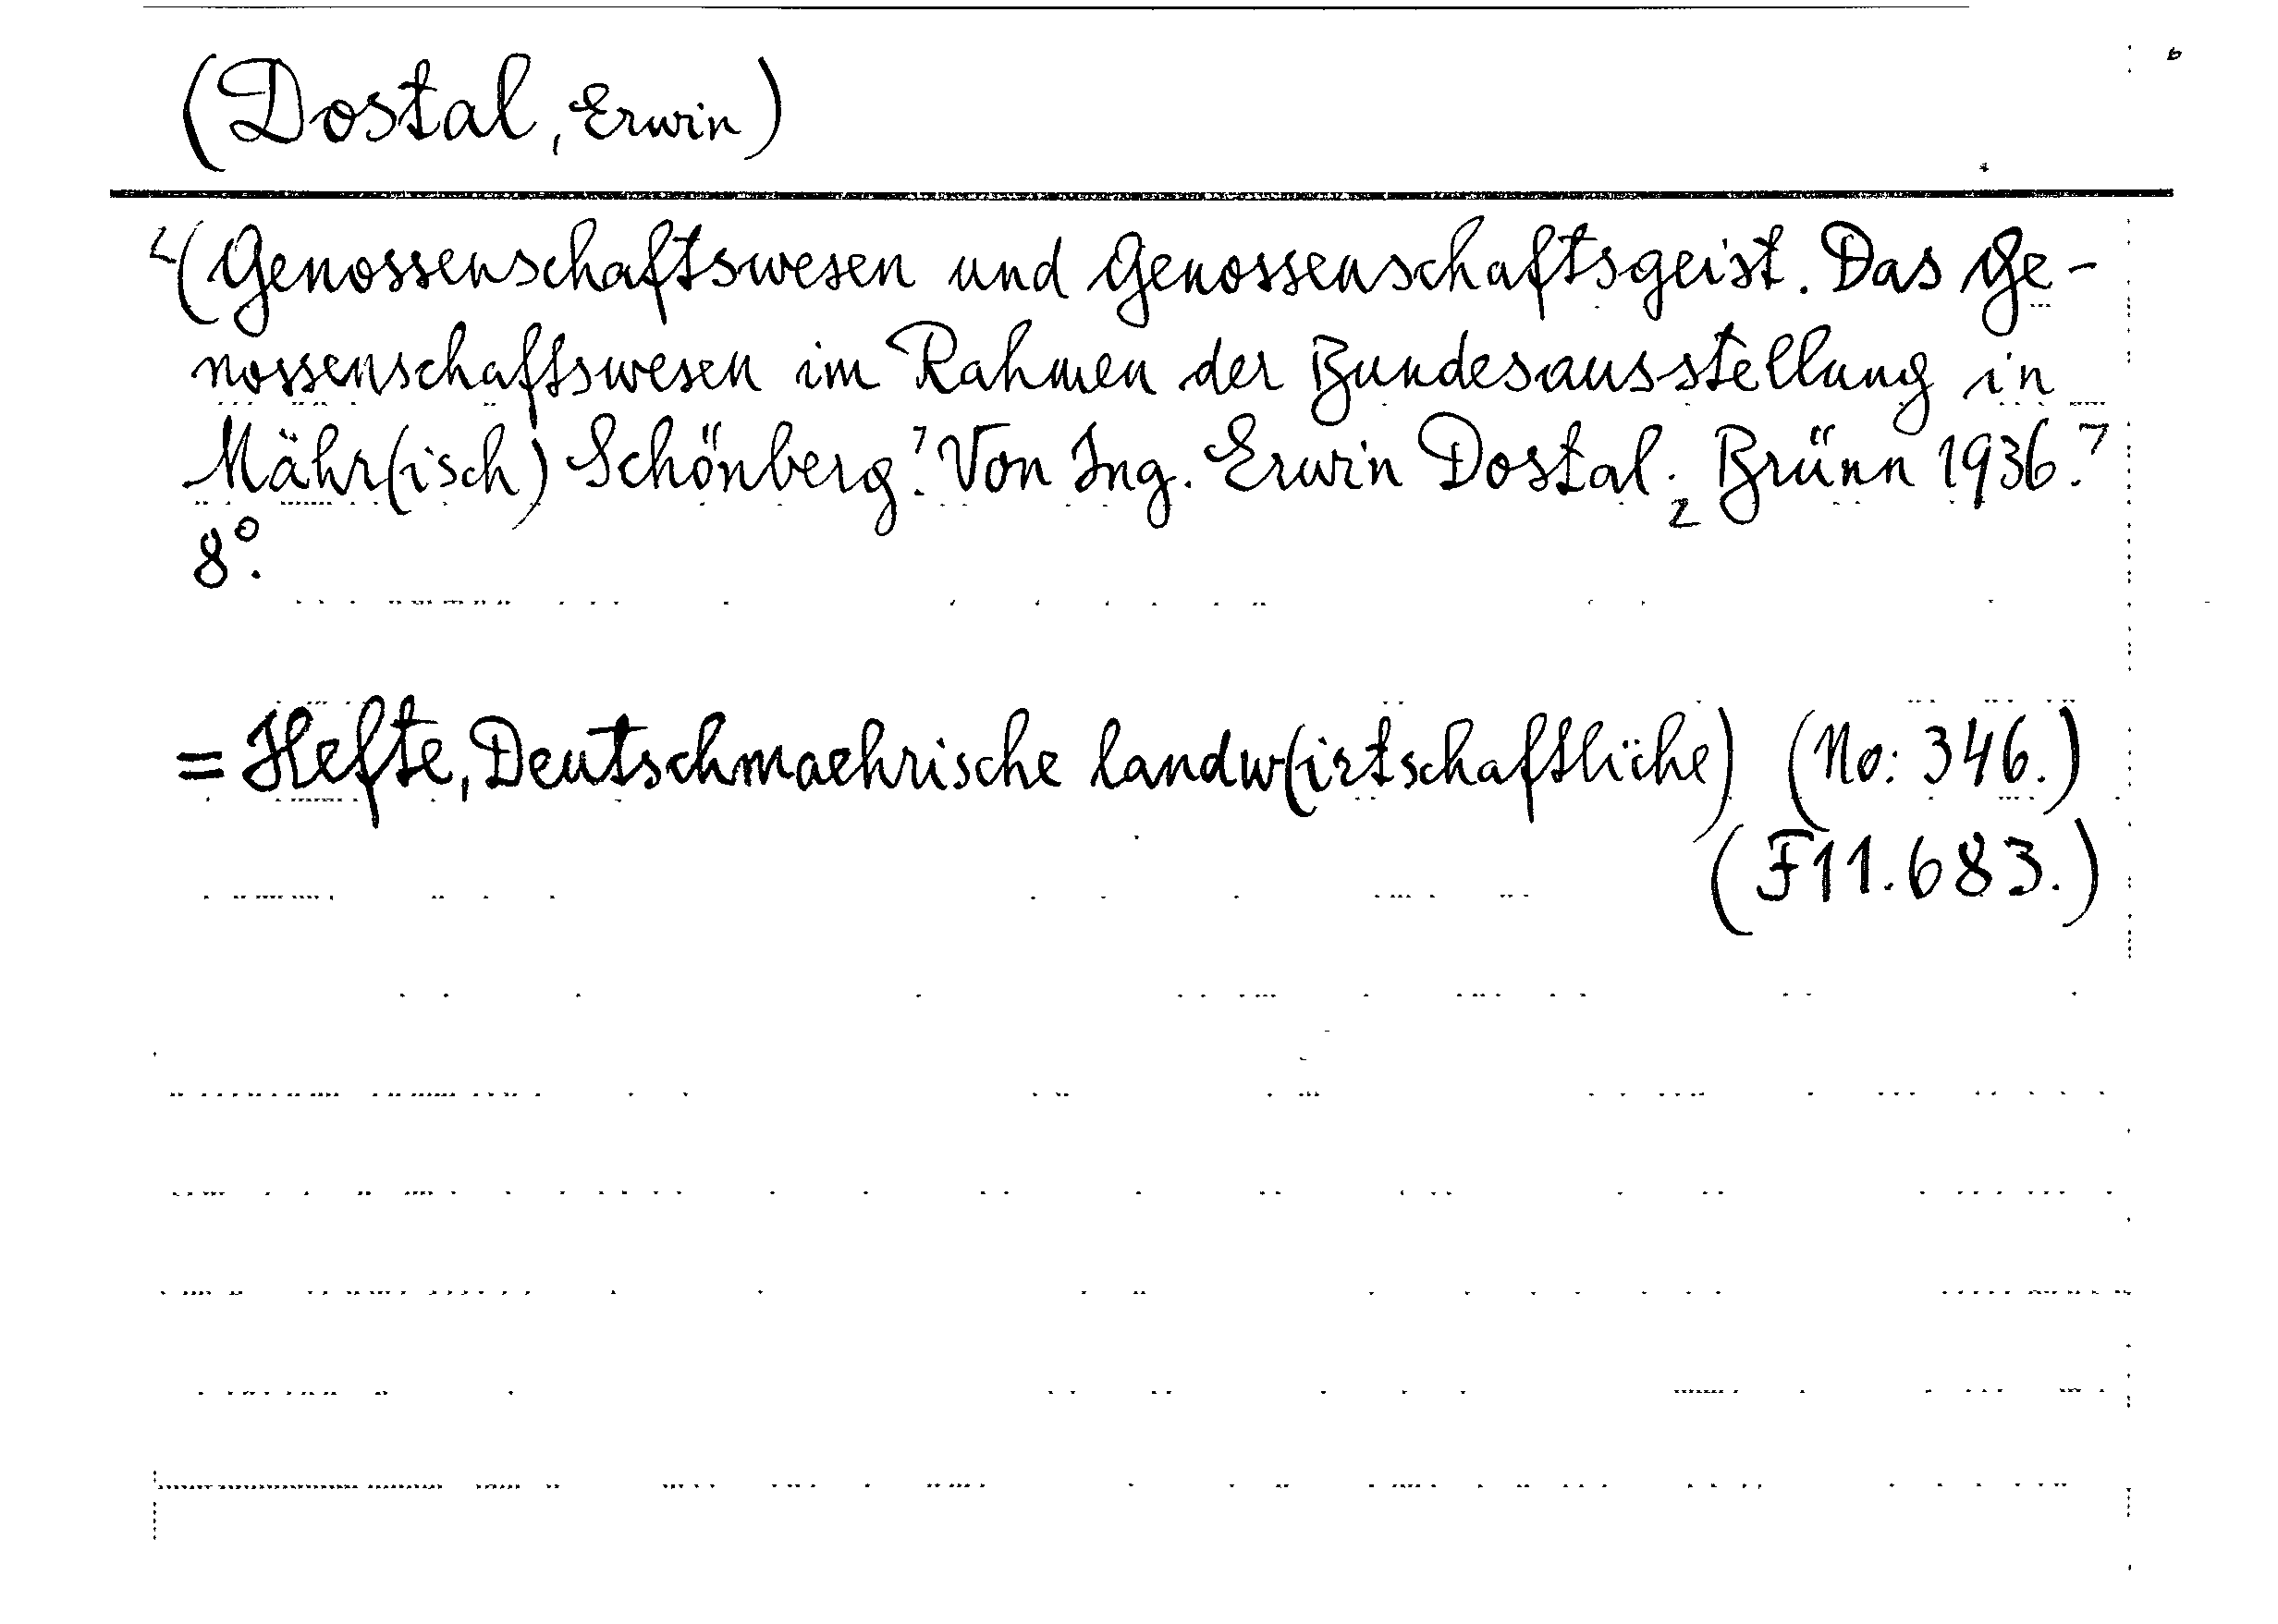 (Dostal, Erwin)
(Genossenschaftswesen und Genossenschaftsgeist. Das Ge-
nossenschaftswesen im Rahmen der Bundesausstellung in
Mähr(isch) Schönberg. Von Ing. Erwin Dostal. Brünn 1936.
8°.
= Hefte, Deutschmaehrische landw(irtschaftliche) (No: 346.)
(F11.683.)